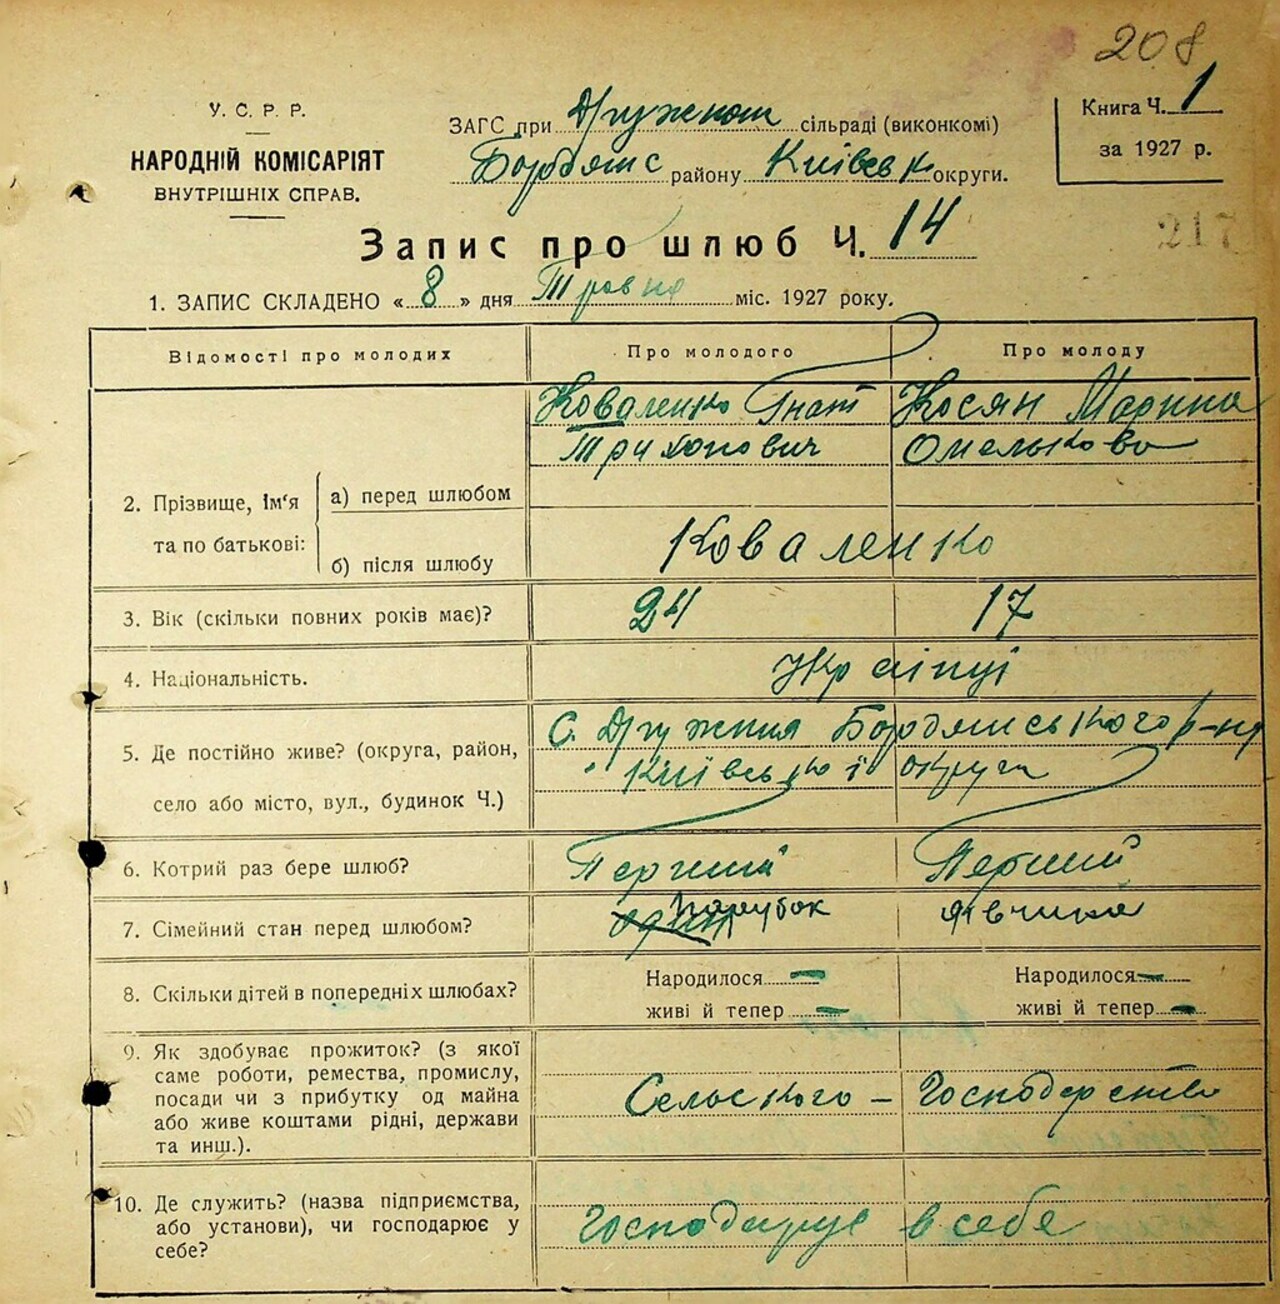 208
У. С. Р. Р.
НАРОДНІЙ КОМІСАРІЯТ
ВНУТРІШНІХ СПРАВ.
ЗАГС при Дружнян сільраді (виконкомі)
Бородянс району Київськ округи.
Книга Ч. 1
за 1927 р.
217
Запис про шлюб Ч. 14
1. ЗАПИС СКЛАДЕНО « 8 » дня Травня міс. 1927 року.
Відомості про молодих
Про молодого
Про молоду
2. Прізвище, ім'я та по батькові:
а) перед шлюбом
Коваленко Гнат
Трихонович
Косян Марина
Омелькова
б) після шлюбу
Коваленко
3. Вік (скільки повних років має)?
24
17
4. Національність.
Українці
5. Де постійно живе? (округа, район,
село або місто, вул., будинок Ч.)
С. Дружня Бородянського р-ну
Київської округи
6. Котрий раз бере шлюб?
Перший
Перший
7. Сімейний стан перед шлюбом?
парубок
дівчина
8. Скільки дітей в попередніх шлюбах?
Народилося —
живі й тепер —
Народилося —
живі й тепер —
9. Як здобуває прожиток? (з якої
саме роботи, ремества, промислу,
посади чи з прибутку од майна
або живе коштами рідні, держави
та инш.).
Сельского – Господарства
10. Де служить? (назва підприємства,
або установи), чи господарює у
себе?
Господирує в себе